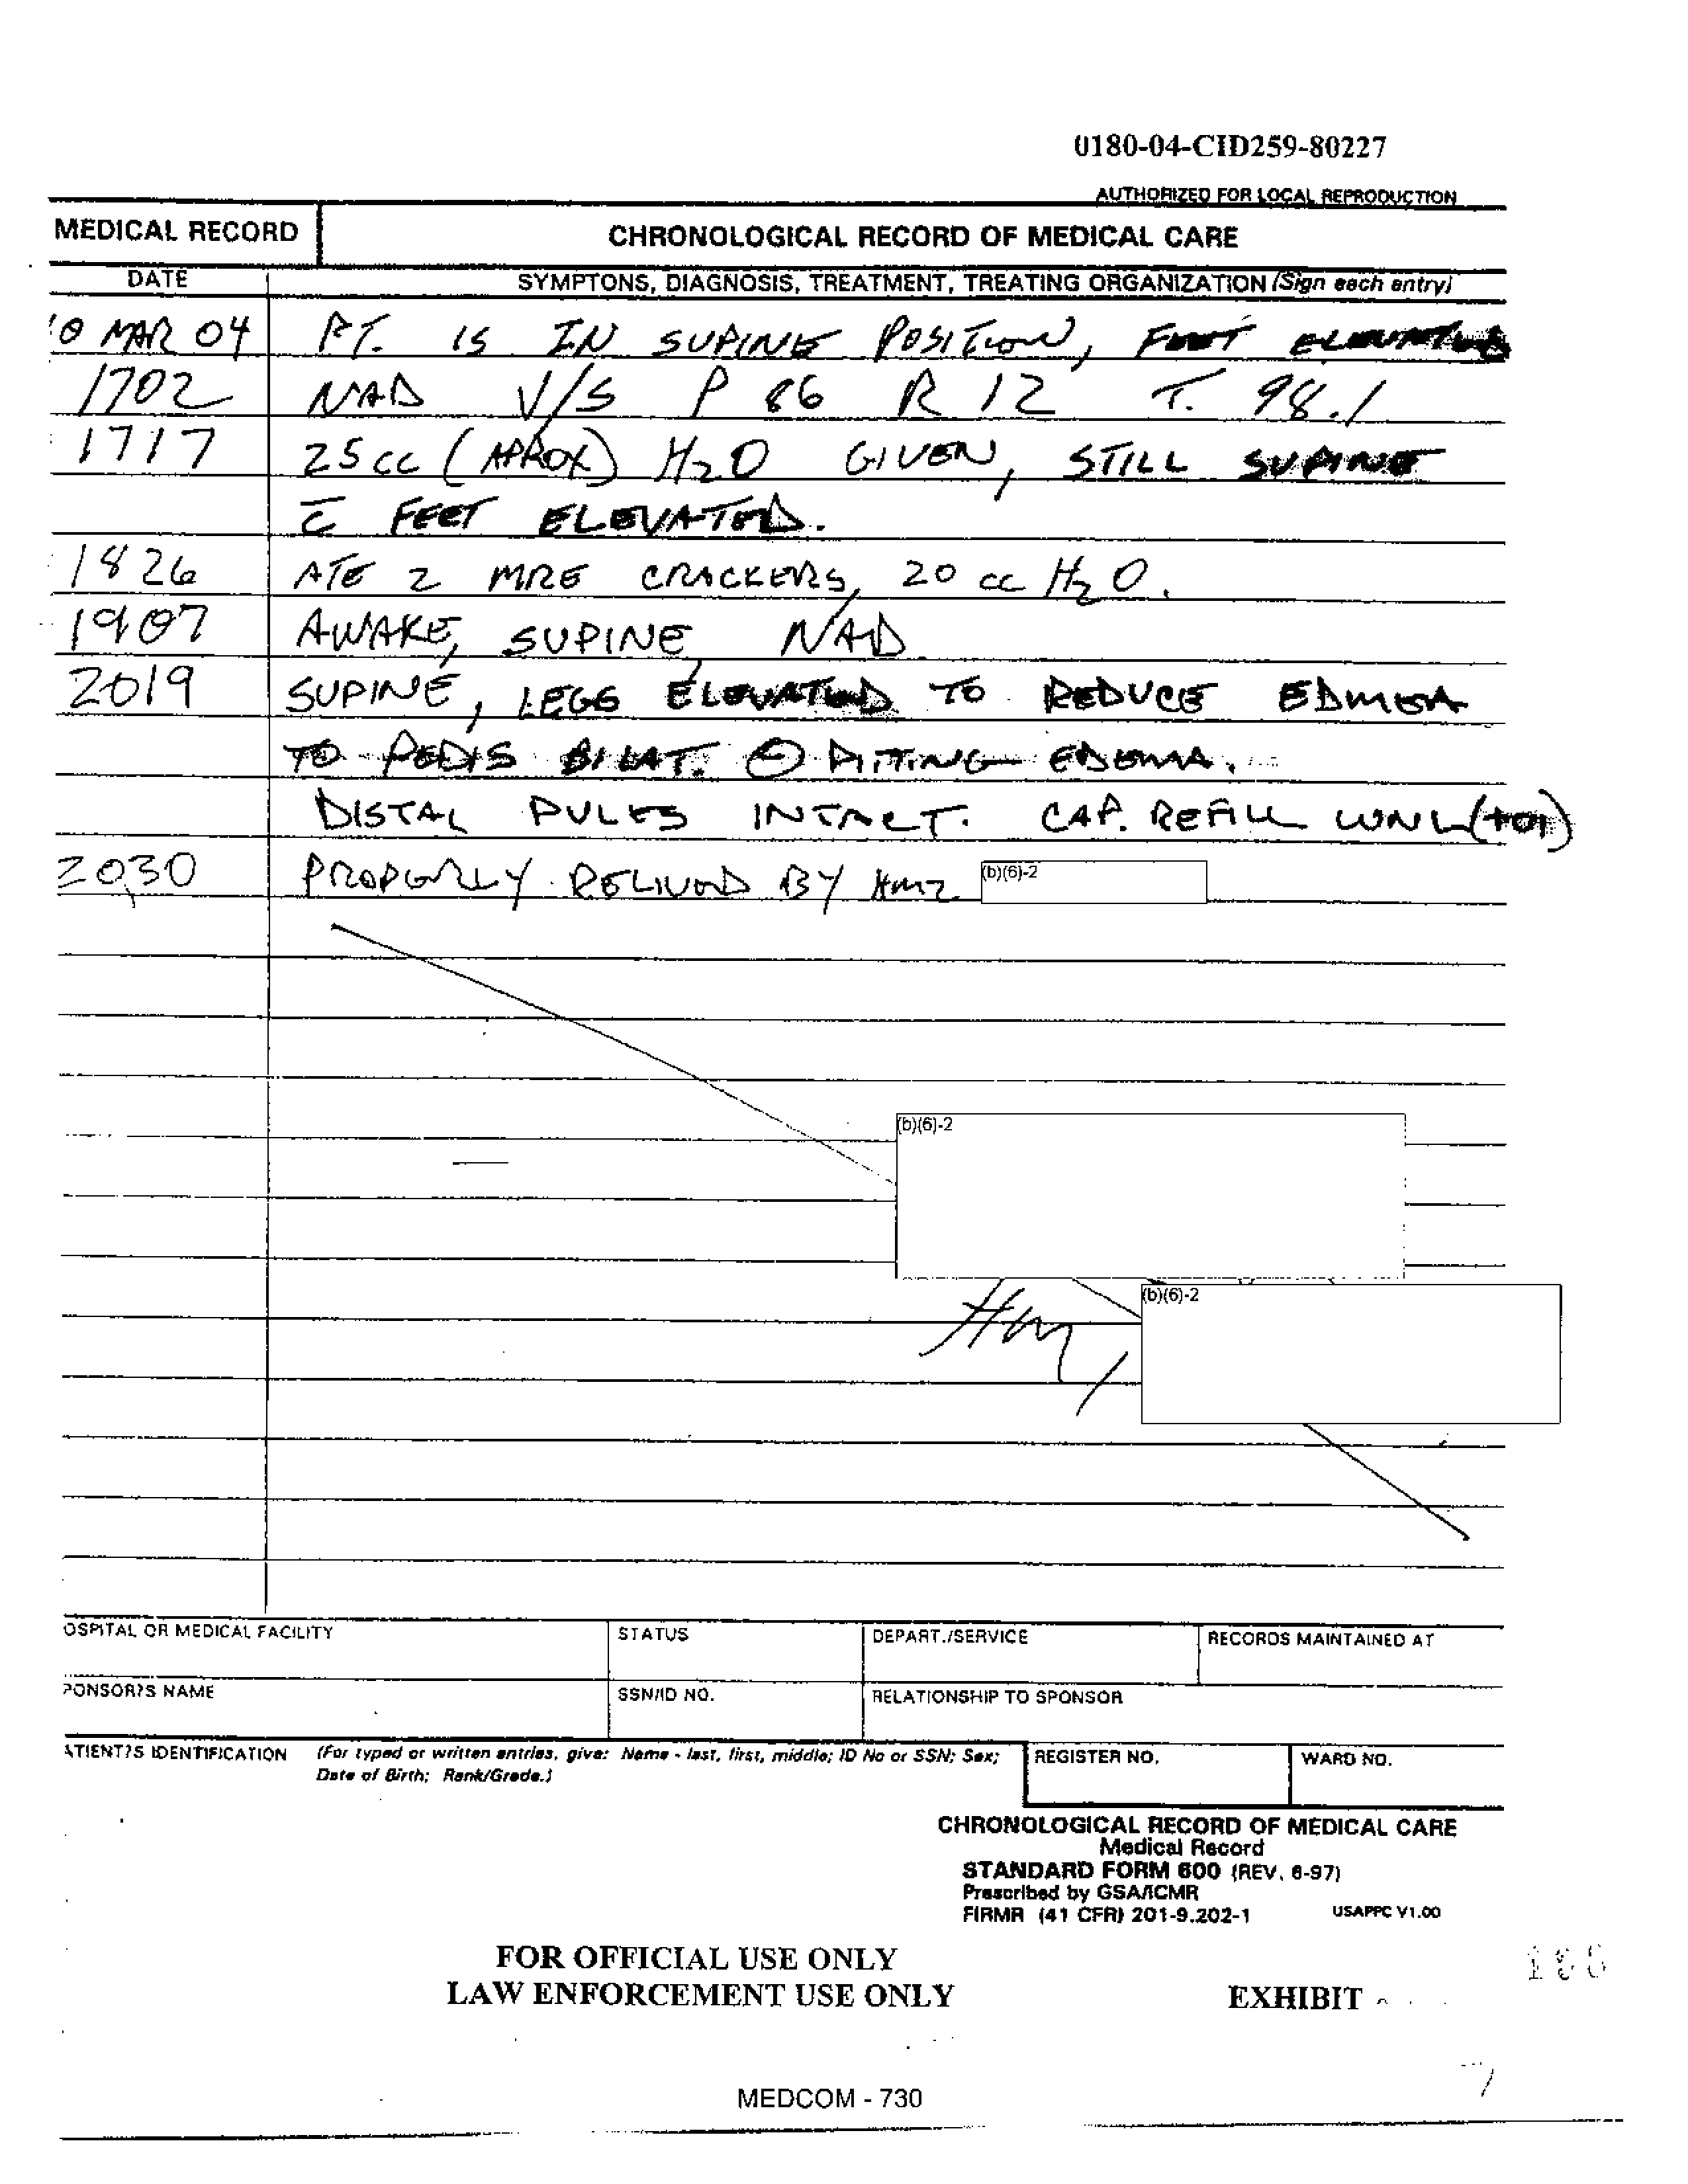 0180-04-CID259-80227
AUTHORIZED FOR LOCAL REPRODUCTION
MEDICAL RECORD
CHRONOLOGICAL RECORD OF MEDICAL CARE
DATE
SYMPTONS, DIAGNOSIS, TREATMENT, TREATING ORGANIZATION (Sign each entry)
10 MAR 04 PT. IS IN SUPINE POSITION, FEET ELEVATED
1702 NAD V/S P 86 R 12 T. 98.1
1717 25cc (APROX) H2O GIVEN, STILL SUPINE
c̄ FEET ELEVATED.
1826 ATE 2 MRE CRACKERS, 20 cc H2O.
1907 AWAKE, SUPINE, NAD
2019 SUPINE, LEGS ELEVATED TO REDUCE EDMEA
TO PEDIS BILAT. ⊖ PITTING EDEMA.
DISTAL PULES INTACT. CAP. REFILL WNL
2030 PROPERLY RELIVED BY HM2 (b)(6)-2
(b)(6)-2
(b)(6)-2
OSPITAL OR MEDICAL FACILITY
STATUS
DEPART./SERVICE
RECORDS MAINTAINED AT
PONSOR?S NAME
SSN/ID NO.
RELATIONSHIP TO SPONSOR
ATIENT?S IDENTIFICATION (For typed or written entries, give: Name - last, first, middle; ID No or SSN; Sex;
Date of Birth; Rank/Grade.)
REGISTER NO.
WARD NO.
CHRONOLOGICAL RECORD OF MEDICAL CARE
Medical Record
STANDARD FORM 600 (REV. 6-97)
Prescribed by GSA/ICMR
FIRMR (41 CFR) 201-9.202-1
USAPPC V1.00
FOR OFFICIAL USE ONLY
LAW ENFORCEMENT USE ONLY
EXHIBIT
MEDCOM - 730